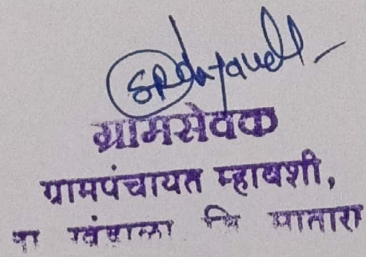 ग्रामसेवक
ग्रामपंचायत म्हावशी,
ता खंडाळा जि सातारा